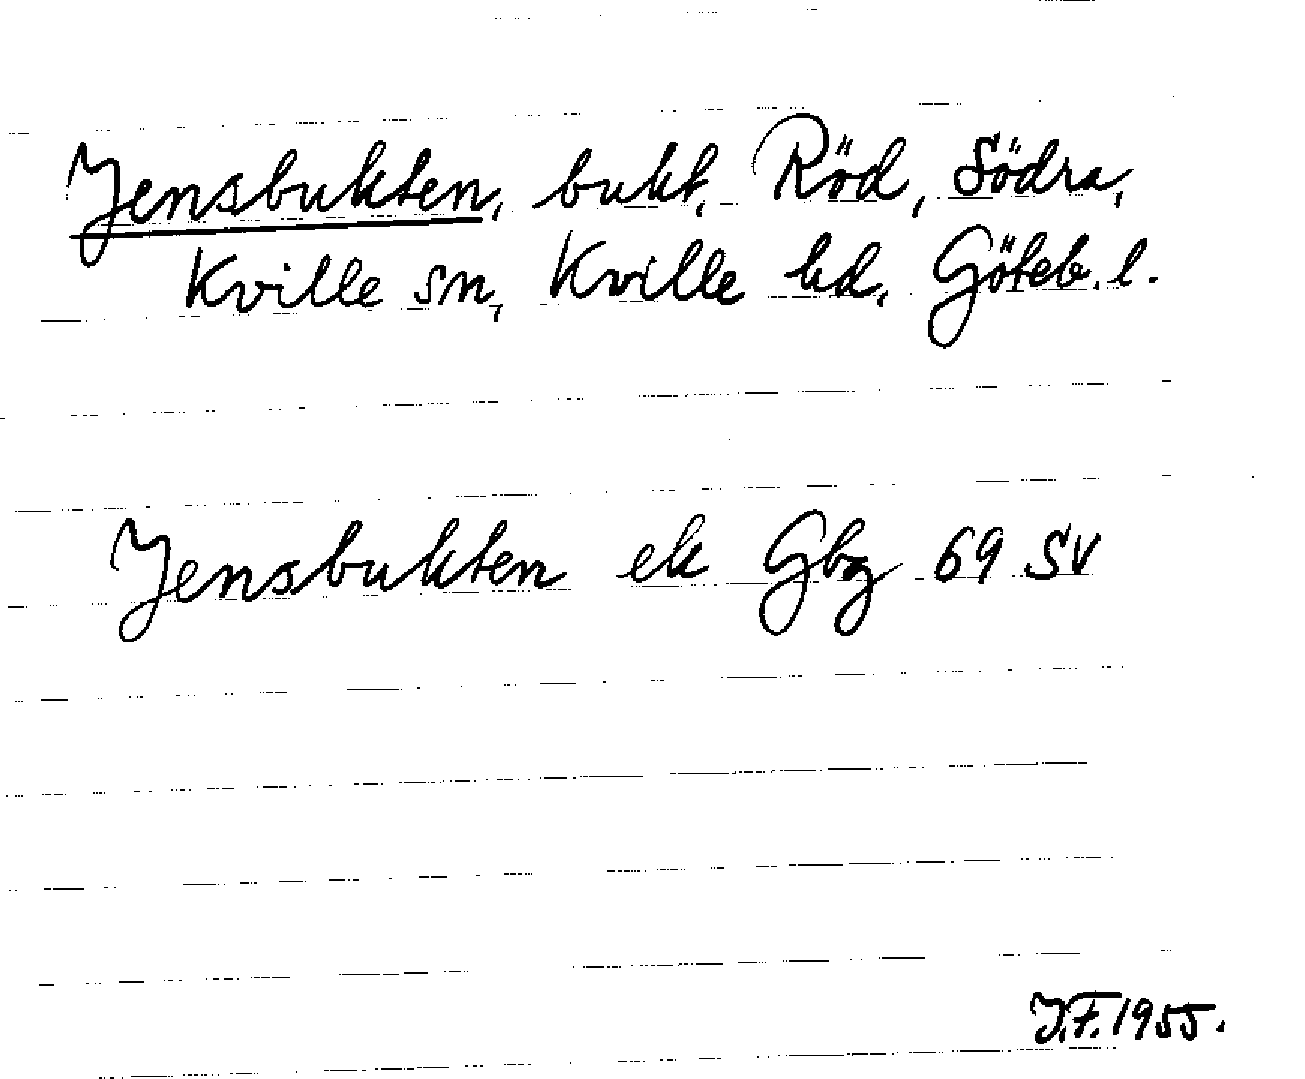 Jensbukten, bukt, Röd, Södra,
Kville sn, Kville hd, Göteb. l.
Jensbukten ek Gbg 69 SV
J.F. 1955.